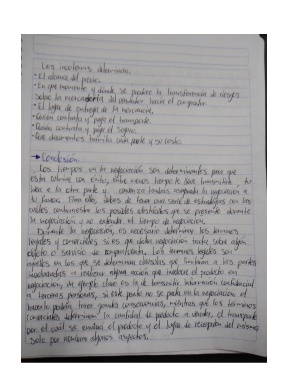 Los incoterms determinan:
• El alcance del precio.
• En que momento y dónde se produce la transferencia de riesgos
sobre la mercadería del vendedor hacia el comprador.
• El lugar de entrega de la mercancía.
• Quién contrata y paga el transporte.
• Quién contrata y paga el seguro.
• Qué documentos tramita cada parte y su costo.
→ Conclusión
Los tiempos en la negociación son determinantes para que
esta culmine con éxito, entre menos tiempo te lleve transmitir tu
idea a la otra parte y convencerla estás cerrando la negociación a
tu favor. Para ello, debes de tener una serie de estrategias con las
cuales contrarrestar los posibles obstáculos que se presente durante
la negociación y no extienda el tiempo de negociación.
Durante la negociación, es necesario determinar los términos
legales y comerciales si es que dicha negociación trata sobre algún
objeto o servicio de compraventa. Los términos legales son
aquellos en los que se determinan cláusulas que limitarán a las partes
involucradas a realizar alguna acción que involucre el producto en
negociación, un ejemplo claro es la de transmitir información confidencial
a terceras personas, si esta parte no se pacta en la negociación el
hacerlo podría traer grandes consecuencias, mientras que los términos
comerciales determinan la cantidad de producto a vender, el transporte
por el cuál se enviará el producto y el lugar de recepción del mismo
solo por nombrar algunos aspectos.